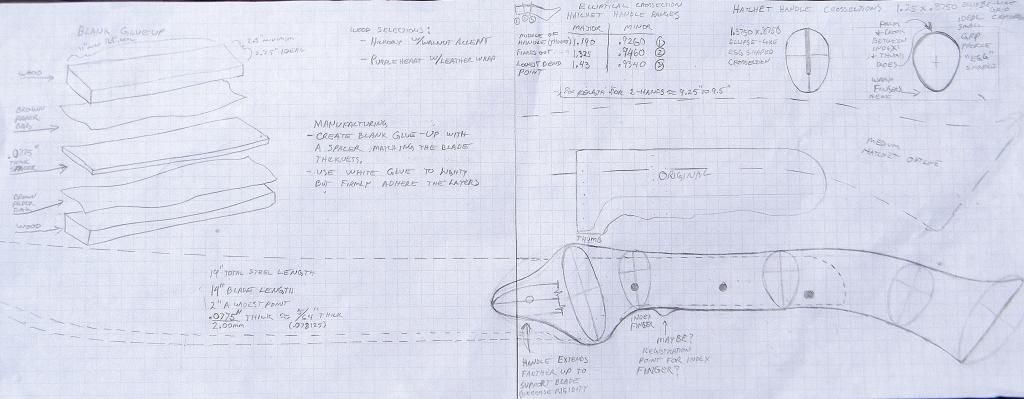 BLANK GLUEUP
2.5" MINIMUM
2.75" IDEAL
WOOD
BROWN
PAPER
BAG
.0775"
THICK
SPACER
BROWN
PAPER
BAG
WOOD
WOOD SELECTIONS:
- HICKORY W/WALNUT ACCENT
- PURPLEHEART W/LEATHER WRAP
MANUFACTURING
- CREATE BLANK GLUE-UP WITH
A SPACER MATCHING THE BLADE
THICKNESS.
- USE WHITE GLUE TO LIGHTLY
BUT FIRMLY ADHERE THE LAYERS
19" TOTAL STEEL LENGTH
14" BLADE LENGTH
2" @ WIDEST POINT
.0775" THICK ≈ 5/64" THICK
2.00mm (.078125)
ELLIPTICAL CROSSECTION
HATCHET HANDLE RANGES
MAJOR MINOR
MIDDLE OF
HANDLE 1.190 .9260 ①
1.325 .9460 ②
LOWEST DEND
POINT 1.43 .9340 ③
FOR 2-HANDS ≈ 9.25" TO 9.5"
HATCHET HANDLE CROSSECTIONS 1.25 x .8750
1.3750 x .8750
ELLIPSE-LIKE
EGG SHAPED
CROSSECTION
PALM
BETWEEN
INDEX
+ THUMB
GOES
WRAP
FINGERS
HERE
IDEAL
SMALL
GRIP
PROFILE
"EGG"
SHAPED
MEDIUM
HATCHET OUTLINE
ORIGINAL
THUMB
INDEX
FINGER
MAYBE?
REGISTRATION
POINT FOR INDEX
FINGER?
HANDLE EXTENDS
FARTHER UP TO
SUPPORT BLADE
INCREASE RIGIDITY